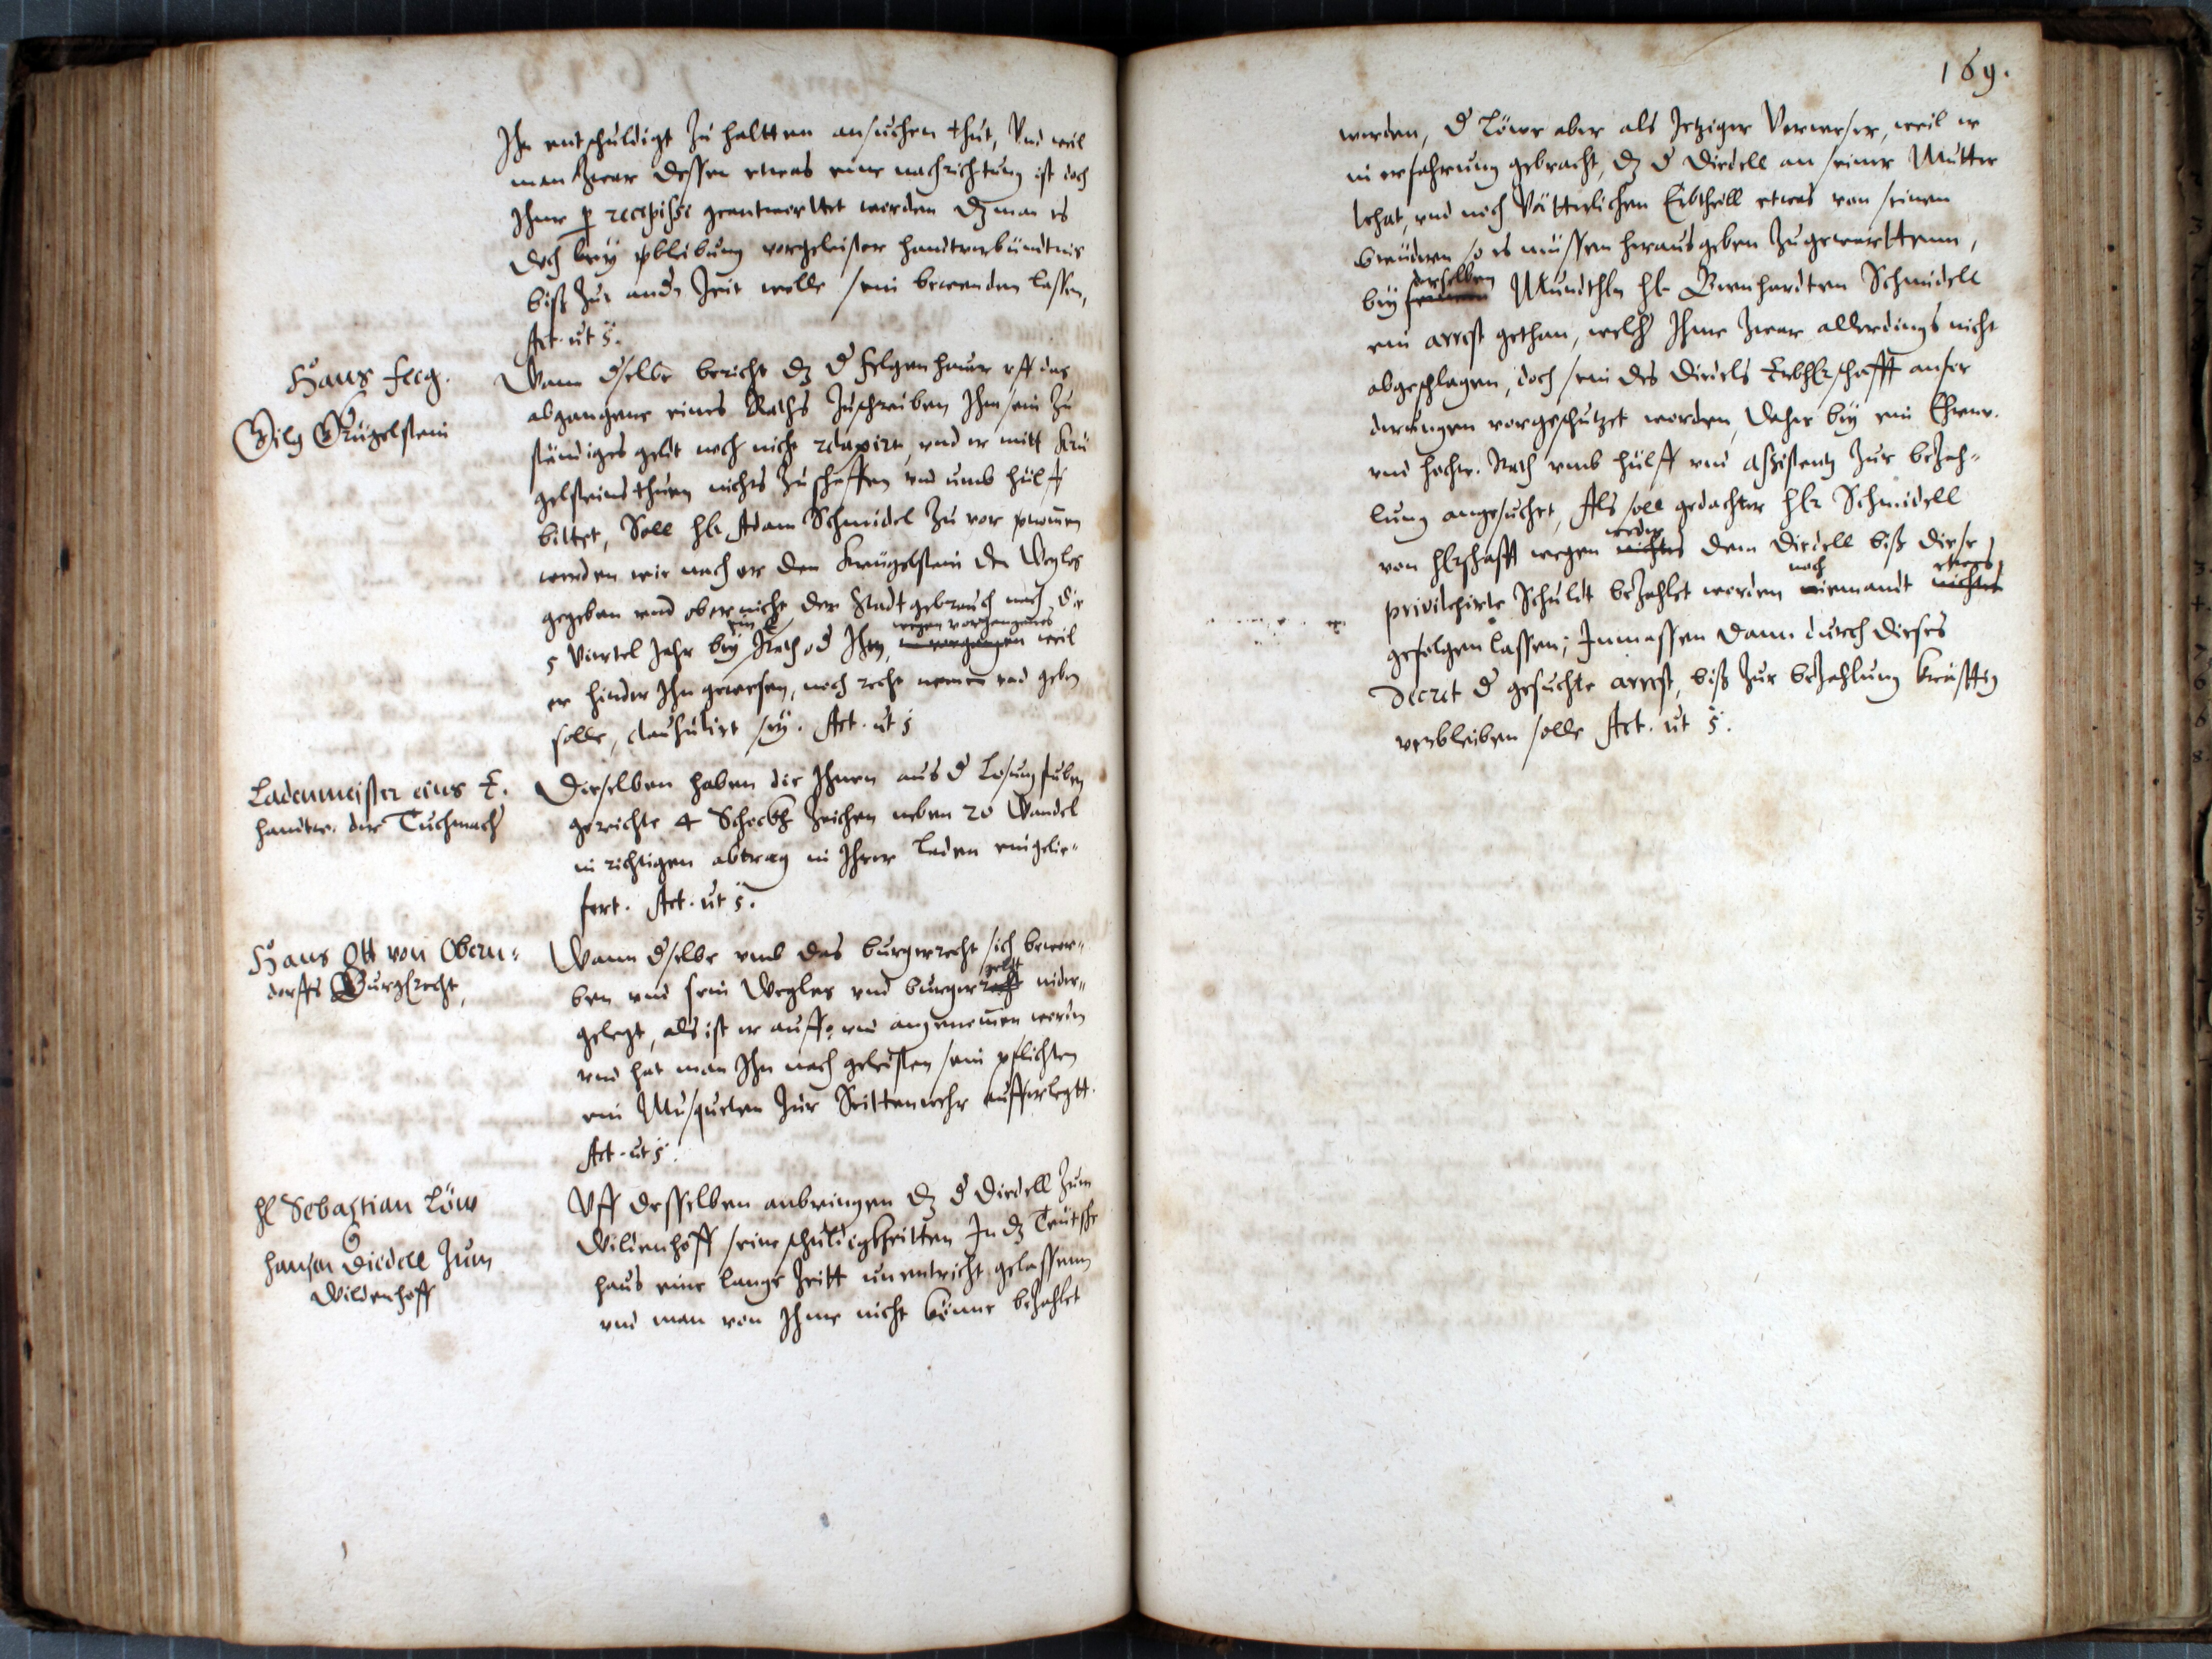 Ihn entschuldigt zu haltten ansuchen thut, Vnd weil
man zwar dessen etwas eine nachrichtung ist doch
Ihme p recepisse geantworttet worden dz man es
doch bey vorgeleister handtverbündtnis
biß zur andn Zeit wolle sein bewenden lassen,
Act. ut s.
Hans Felg.
Gilg Krügelstein
Wann dselbe bericht dz d Felgenhauer vff das
abgangene eines Raths zuschreiben Ihm sein zu
stendiges geldt noch nicht relaxirn, vnd er mitt Krü
gelsteins thuen nichts zu schaffen vnd umb hülff
bittet, Soll hr Adam Schmidel zu vor vernomen
werden wie nach er den Krügelstein den Weglas
gegeben vnd ober nicht der Stadt gebrauch nach, die
5 Viertel Jahr bey ein E Rath od Ihm, wegen vorgangenes weil
er hinder Ihn gewesen, noch recht nemen vnd geben
solle, clausulirt sey. Act. ut s
Ladenmeister eins E.
handtw. der Tuchmach
Dieselben haben die Ihnen aus d Losungstuben
gereichte 4 Schockh Zeichen neben 20 Wandel
in richtigen abtrag in Ihrer Laden eingelie-
fert. Act. ut s.
Hans Ott von Obern-
dorffs Burgkrecht,
Wann dselbe vmb das burgerrecht sich bewor-
ben vnd sein Weglas vnd burgerrecht geldt nider-
gelegt, als ist er auff- vnd angenomen wordn
vnd hat man Ihn nach geleisten sein pflichten
ein Musqueten zur Seittenwehr aufferlegtt.
Act. ut s.
hl Sebastian Löw
Hansen Diedell zum
Wildenhoff
Vff desselben anbringen dz d Diedell zum
Wildenhoff seine schuldigkheitten In dz Teutsche
haus eine lange Zeitt unentricht gelassenn
vnd man von Ihme nicht könne bezahlet
169.
werden, d Löwe aber als Jetziger Verweser, weil er
in erfahrung gebracht, dz d Diedell an seiner Mutter
vnd noch Vätterlichen Erbtheill etwas von seinen
brüdern so es müssen herausgeben zugewarttenn,
bey derselben Mundthln hr Bernhardten Schmidell
ein arrest gethan, welchs Ihme zwar allerdings nicht
abgeschlagen, doch sein des Diedels Erbherschafft anfor
derungen vorgeschutzet worden, Daher bey ein Ehrnv.
vnd hochw. Rath vmb hülff vnd assistentz zur bezah-
lung angesuchet, Als soll gedachter hr Schmidell
von hrschafft wegen weder nichts dem Diedell biß diese
privilehirte Schuldt bezahlet worden noch niemandt etwas nichtes
gefolgen lassen; Inmassen dann durch dieses
Decret d gesuchte arrest, biß zur bezahlung kräfftig
verbleiben solle Act. ut s.